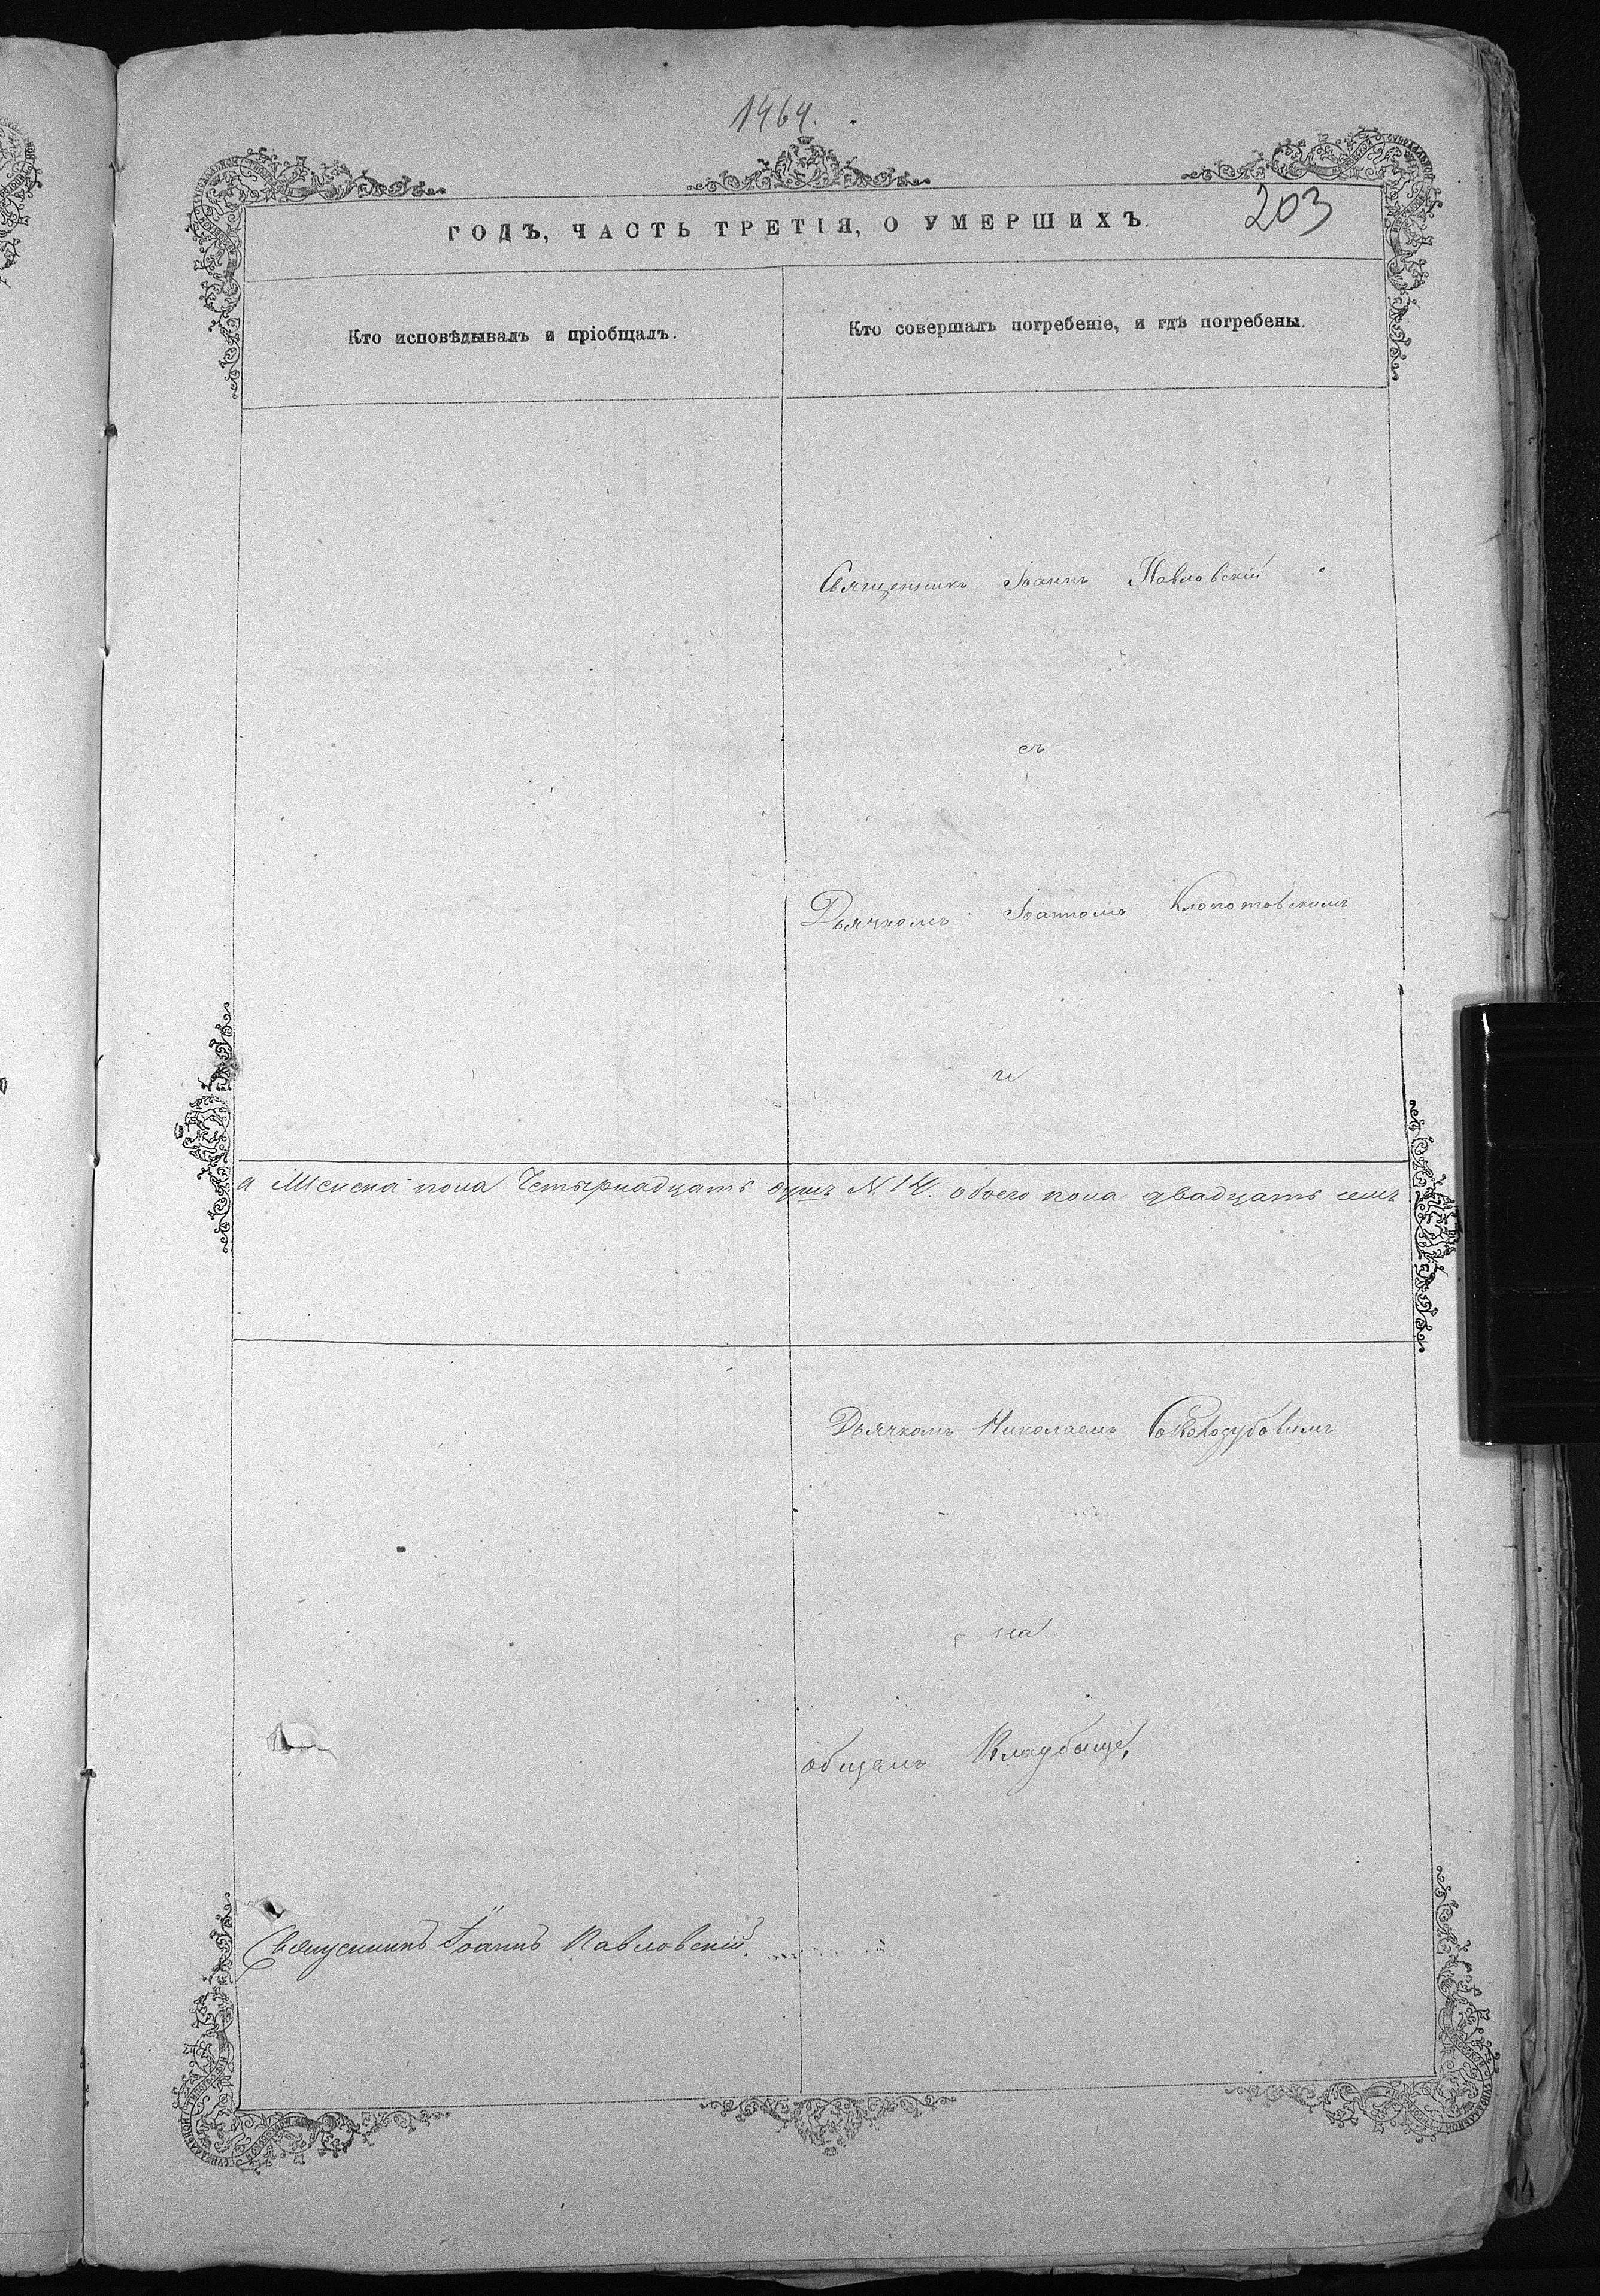 1464.
203
ГОДЪ, ЧАСТЬ ТРЕТІЯ, О УМЕРШИХЪ.
Кто исповѣдывалъ и пріобщалъ.
Кто совершалъ погребеніе, и гдѣ погребены.
Священникъ Іоаннъ Павловскій
съ
Дьячкомъ Іоанномъ Клопотовскимъ
и
а Женска пола Четырнадцать душъ N. 14. обоего пола двадцать семь
Дьячкомъ Николаемъ
на
общемъ Кладбищѣ,
Священникъ Іоаннъ Павловскій.